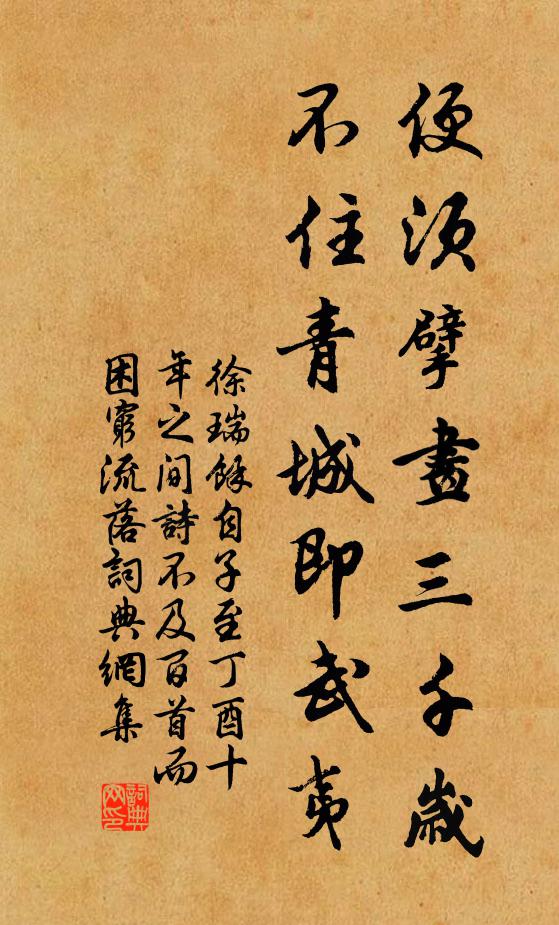 便須擘畫三千歲
不住青城即武夷
徐瑞餘自子至丁酉十
年之间詩不及百首而
困窮流落詞典網集
詞典網印